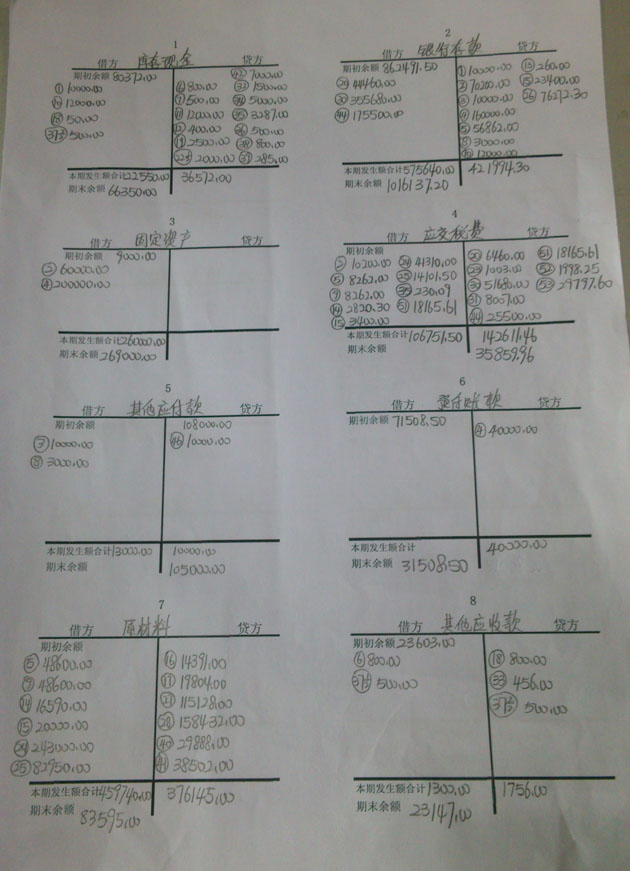 1
借方 库存现金 贷方
期初余额 80372.00 ㊷ 7000.00
① 10000.00 ⑥ 800.00 ㉝ 1500.00
12000.00 ⑦ 500.00 ㉞ 5000.00
⑱ 50.00 ⑪ 12000.00 ㉟ 3287.00
500.00 ⑫ 400.00 500.00
⑲ 2500.00 800.00
2000.00 285.00
本期发生额合计 22550.00 36572.00
期末余额 66350.00
2
借方 银行存款 贷方
期初余额 862491.50 ① 10000.00 ⑬ 260.00
44460.00 ② 70200.00 ⑮ 23400.00
㉚ 355680.00 ③ 10000.00 ㉖ 76272.30
㊹ 175500.00 160000.00
⑤ 56862.00
⑧ 3000.00
⑩ 12000.00
本期发生额合计 575640.00 421994.30
期末余额 1016137.20
3
借方 固定资产 贷方
期初余额 9000.00
② 60000.00
④ 200000.00
本期发生额合计 260000.00
期末余额 269000.00
4
借方 应交税费 贷方
期初余额 ⑳ 6460.00 �51 18165.61
② 10200.00 ㉔ 41310.00 1003.00 52 1998.25
⑤ 8262.00 ㉕ 14101.50 ㉚ 51680.00 53 29797.60
⑨ 8262.00 230.09 ㉛ 8007.00
⑭ 2820.30 51 18165.61 ㊹ 25500.00
⑮ 3400.00
本期发生额合计 106751.50 142611.46
期末余额 35859.96
5
借方 其他应付款 贷方
期初余额 108000.00
③ 10000.00 ㊻ 10000.00
⑧ 3000.00
本期发生额合计 13000.00 10000.00
期末余额 105000.00
6
借方 预付账款 贷方
期初余额 71508.50
④ 40000.00
本期发生额合计 40000.00
期末余额 31508.50
7
借方 原材料 贷方
期初余额
⑤ 48600.00 ⑯ 14391.00
⑨ 48600.00 ⑰ 19804.00
⑭ 16590.00 115128.00
⑮ 20000.00 ㉘ 158432.00
㉔ 243000.00 ㊵ 29888.00
㉕ 82950.00 ㊶ 38502.00
本期发生额合计 459740.00 376145.00
期末余额 83595.00
8
借方 其他应收款 贷方
期初余额 23603.00
⑥ 800.00 ⑱ 800.00
500.00 ㉝ 456.00
500.00
本期发生额合计 1300.00 1756.00
期末余额 23147.00